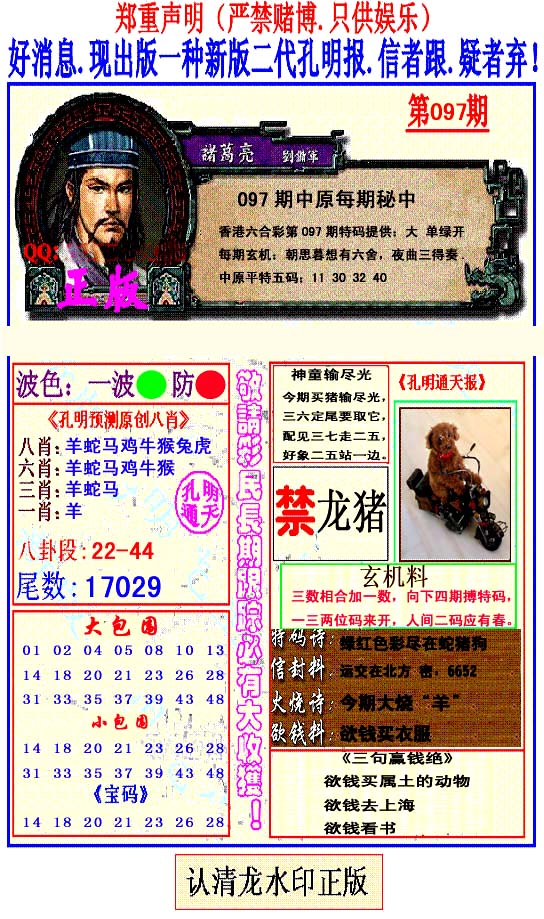 郑重声明（严禁赌博.只供娱乐）
好消息.现出版一种新版二代孔明报.信者跟.疑者弃！
第097期
諸葛亮 劉備軍
097 期中原每期秘中
香港六合彩第 097 期特码提供：大 单绿开
每期玄机：朝思暮想有六舍，夜曲三得奏.
中原平特五码：11 30 32 40
QQ:
正版
波色：一波 防
《孔明预测原创八肖》
八肖：羊蛇马鸡牛猴兔虎
六肖：羊蛇马鸡牛猴
三肖：羊蛇马
一肖：羊
孔明
通天
八卦段：22-44
尾数：17029
大包围
01 02 04 05 08 10 13
14 18 20 21 23 26 28
31 33 35 37 39 43 48
小包围
14 18 20 21 23 26 28
31 33 35 37 39 43 48
《宝码》
14 18 20 21 23 26 28
敬請彩民長期跟踪必有大收獲！
神童输尽光
今期买猪输尽光，
三六定尾要取它，
配见三七走二五，
好象二五站一边。
《孔明通天报》
禁龙猪
玄机料
三数相合加一数，向下四期搏特码，
一三两位码来开，人间二码应有春。
特码诗：绿红色彩尽在蛇猪狗
信封料：运交在北方 密．6652
火烧诗：今期大烧“羊”
欲钱料：欲钱买衣服
《三句赢钱绝》
欲钱买属土的动物
欲钱去上海
欲钱看书
认清龙水印正版